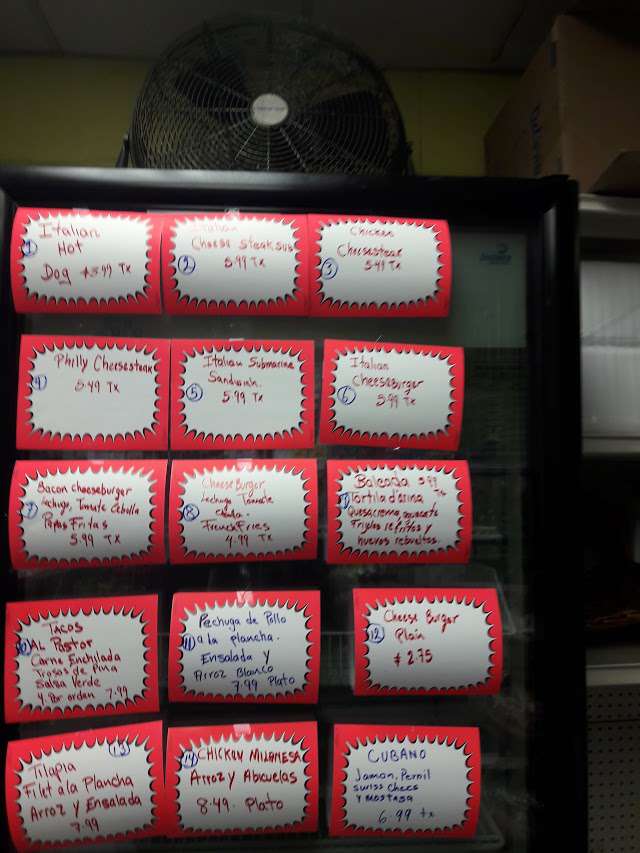 Italian
Hot
1
Dog $3.99 Tx
Italian
Cheese steak sub
2
5.99 Tx
Chicken
Cheesesteak
3
5.49 Tx
Philly Cheesesteak
4
5.49 Tx
Italian Submarine
Sandwich.
5
5.99 Tx
Italian
Cheeseburger
6
5.99 Tx
Bacon cheeseburger
7
Lechuga, Tomate Cebolla
Papas Fritas
5.99 Tx
Cheese Burger
Lechuga Tomate
8
French Fries
4.99 Tx
Baleada 5.99
Tx
9
Tortilla d'arina
Quesa, crema, aguacate
Frijoles refritos y
huevos rebueltos.
Tacos
10
AL Pastor
Carne Enchilada
Trosos de Pina
Salsa Verde
4 Por orden 7.99
Pechuga de Pollo
11
a la plancha.
Ensalada y
Arroz Blanco
7.99 Plato
Cheese Burger
12
Plain
$ 2.75
13
Tilapia
Filet a la Plancha
Arroz y Ensalada
7.99
14
CHICKEN MILANESA
Arroz y Abicuelas
8.49. Plato
CUBANO
Jamon, Pernil
swiss Chees
y mostasa
6.99 tx